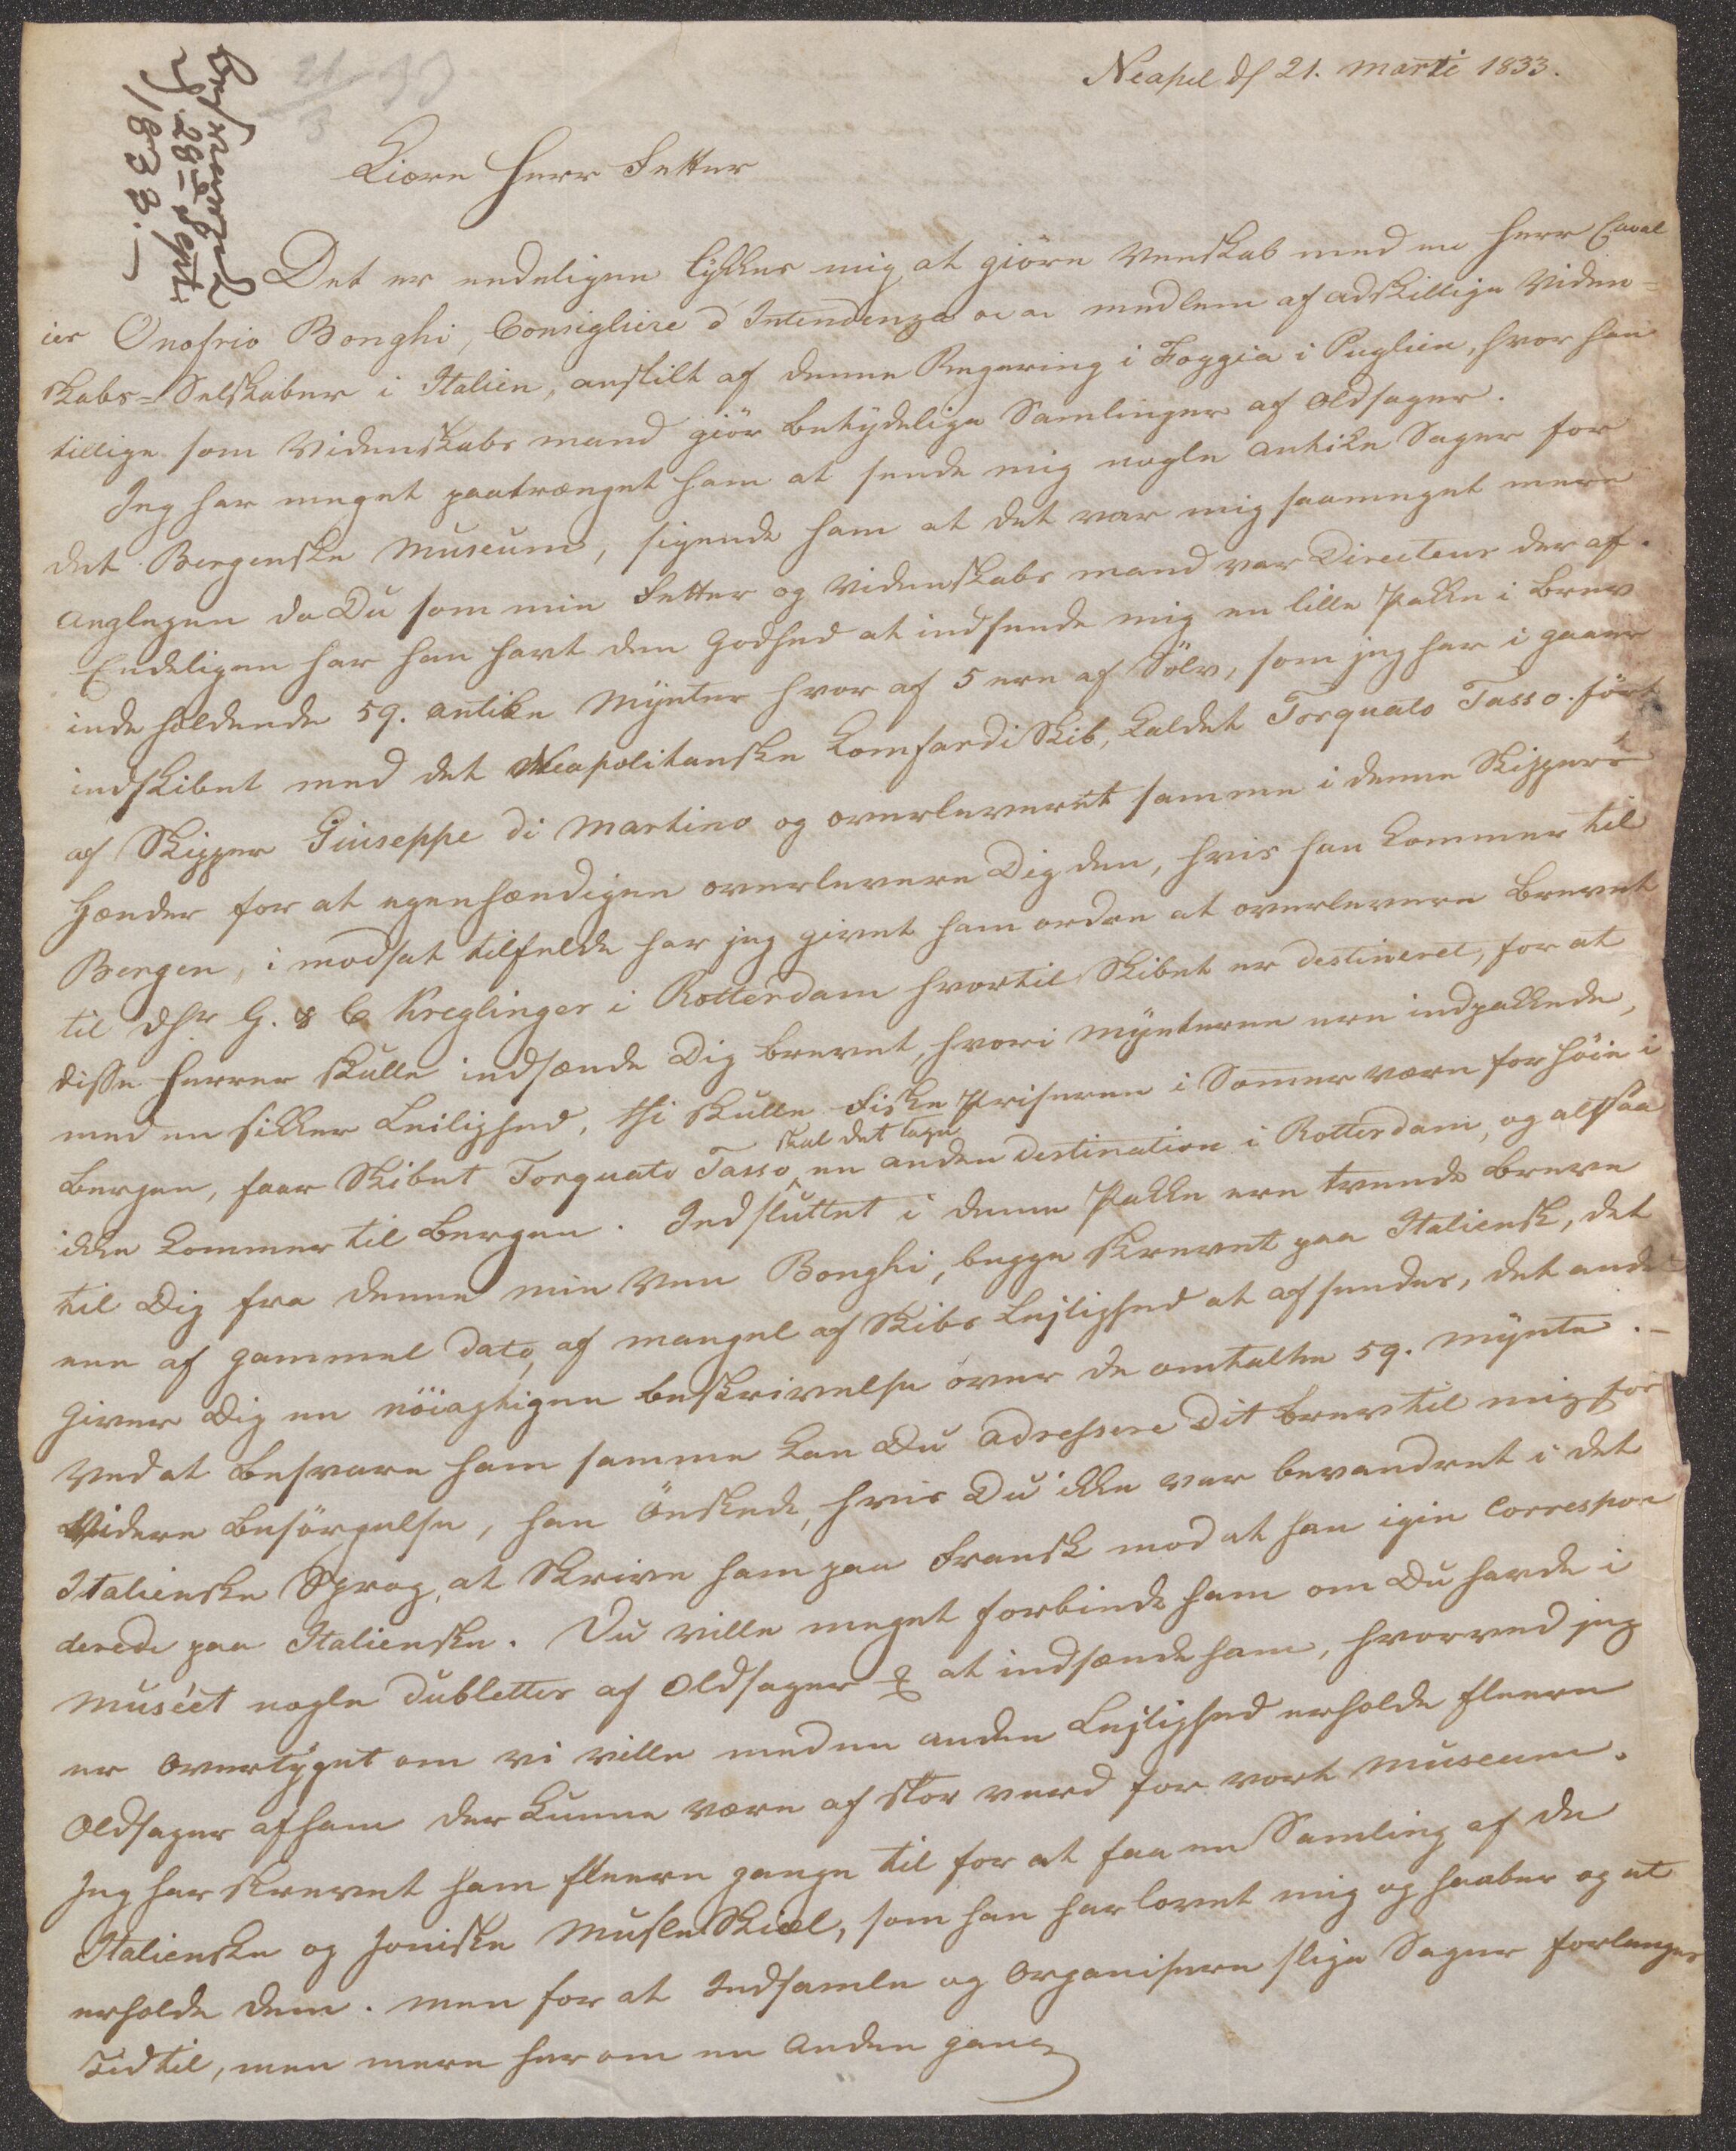 Neapel df 21. Marti 1833.
21/3 33
Besvaret
d. 28de Sept.
1833. –
Kiære Herr Fetter
Det er endeligen lykkes mig at giöre Venskab med en Herr Caval
ier Onofrio Bonghi, Consigliere d'Intendenza o: a: medlem af adskillige Viden=
skabs=Selskaber i Italien, anstilt af denne Regering i Foggia i Puglien, hvor han
tillige som Videnskabs mand giör betydelige Samlinger af Oldsager.
Jeg har meget paatrænget ham at sende mig nogle antike Sager for
det Bergenske Museum, sigende ham at det var mig saameget mere
anglegen da Du som min Fetter og Videnskabs mand var Directeur der af.
Endeligen har han havt den Godhed at indsende mig en lille Pakke i Brev
inde holdende 59. antike Mynter hvor af 5 ere af Sölv, som jeg har i gaar
indskibet med det Neapolitanske Comfardi Skib, kaldet Torquato Tasso. fört
af Skipper Giuseppe di Martino og overleveret samme i denne Skippers
Hænder for at egenhændigen overlevere Dig den, hvis han kommer til
Bergen, i modsat tilfelde har jeg givet ham ordre at overlevere Brevet
til dhr G. & C Kreglinger i Rotterdam hvortil Skibet er destineret, for at
disse Herrer skulle indsænde Dig brevet, hvori Mynterne ere indpakkede,
med en sikker Leilighed, thi skulle Fiske Priserne i Sommer være for höie i
Bergen, faar Skibet Torquato Tasso, skal det tage en anden destination i Rotterdam, og altsaa
ikke kommer til Bergen. Indsluttet i denne Pakke ere tvende Breve
til Dig fra denne min Ven Bonghi, begge skrevet paa Italiensk, det
ene af gammel Dato, af mangel af Skibs Lejlighed at afsendes, det andet
Giver Dig en nöiagtigen beskrivelse over de omtalte 59. mynte. –
Ved at besvare ham samme kan Du adressere Dit brev til mig for
Videre besörgelse, han önskede, hvis Du ikke var bevandret i det
Italienske Sprog, at skrive ham paa Fransk mod at han igien Correspon
derede paa Italienske. Du ville meget forbinde ham om Du havde i
Muséet nogle Dubletter af Oldsager at indsænde ham, hvorved jeg
er overtyget om vi ville med en anden Lejlighed erholde fleere
Oldsager af ham der kunne være af stor verd for vort Museum.
Jeg har skrevet ham fleere gange til for at faa en Samling af de
Italienske og Joniske Musle Skiæl, som han har lovet mig og haaber og at
erholde dem. men for at Indsamle og Organisere slige Sager forlanges
Tid til, men mere her om en anden gang